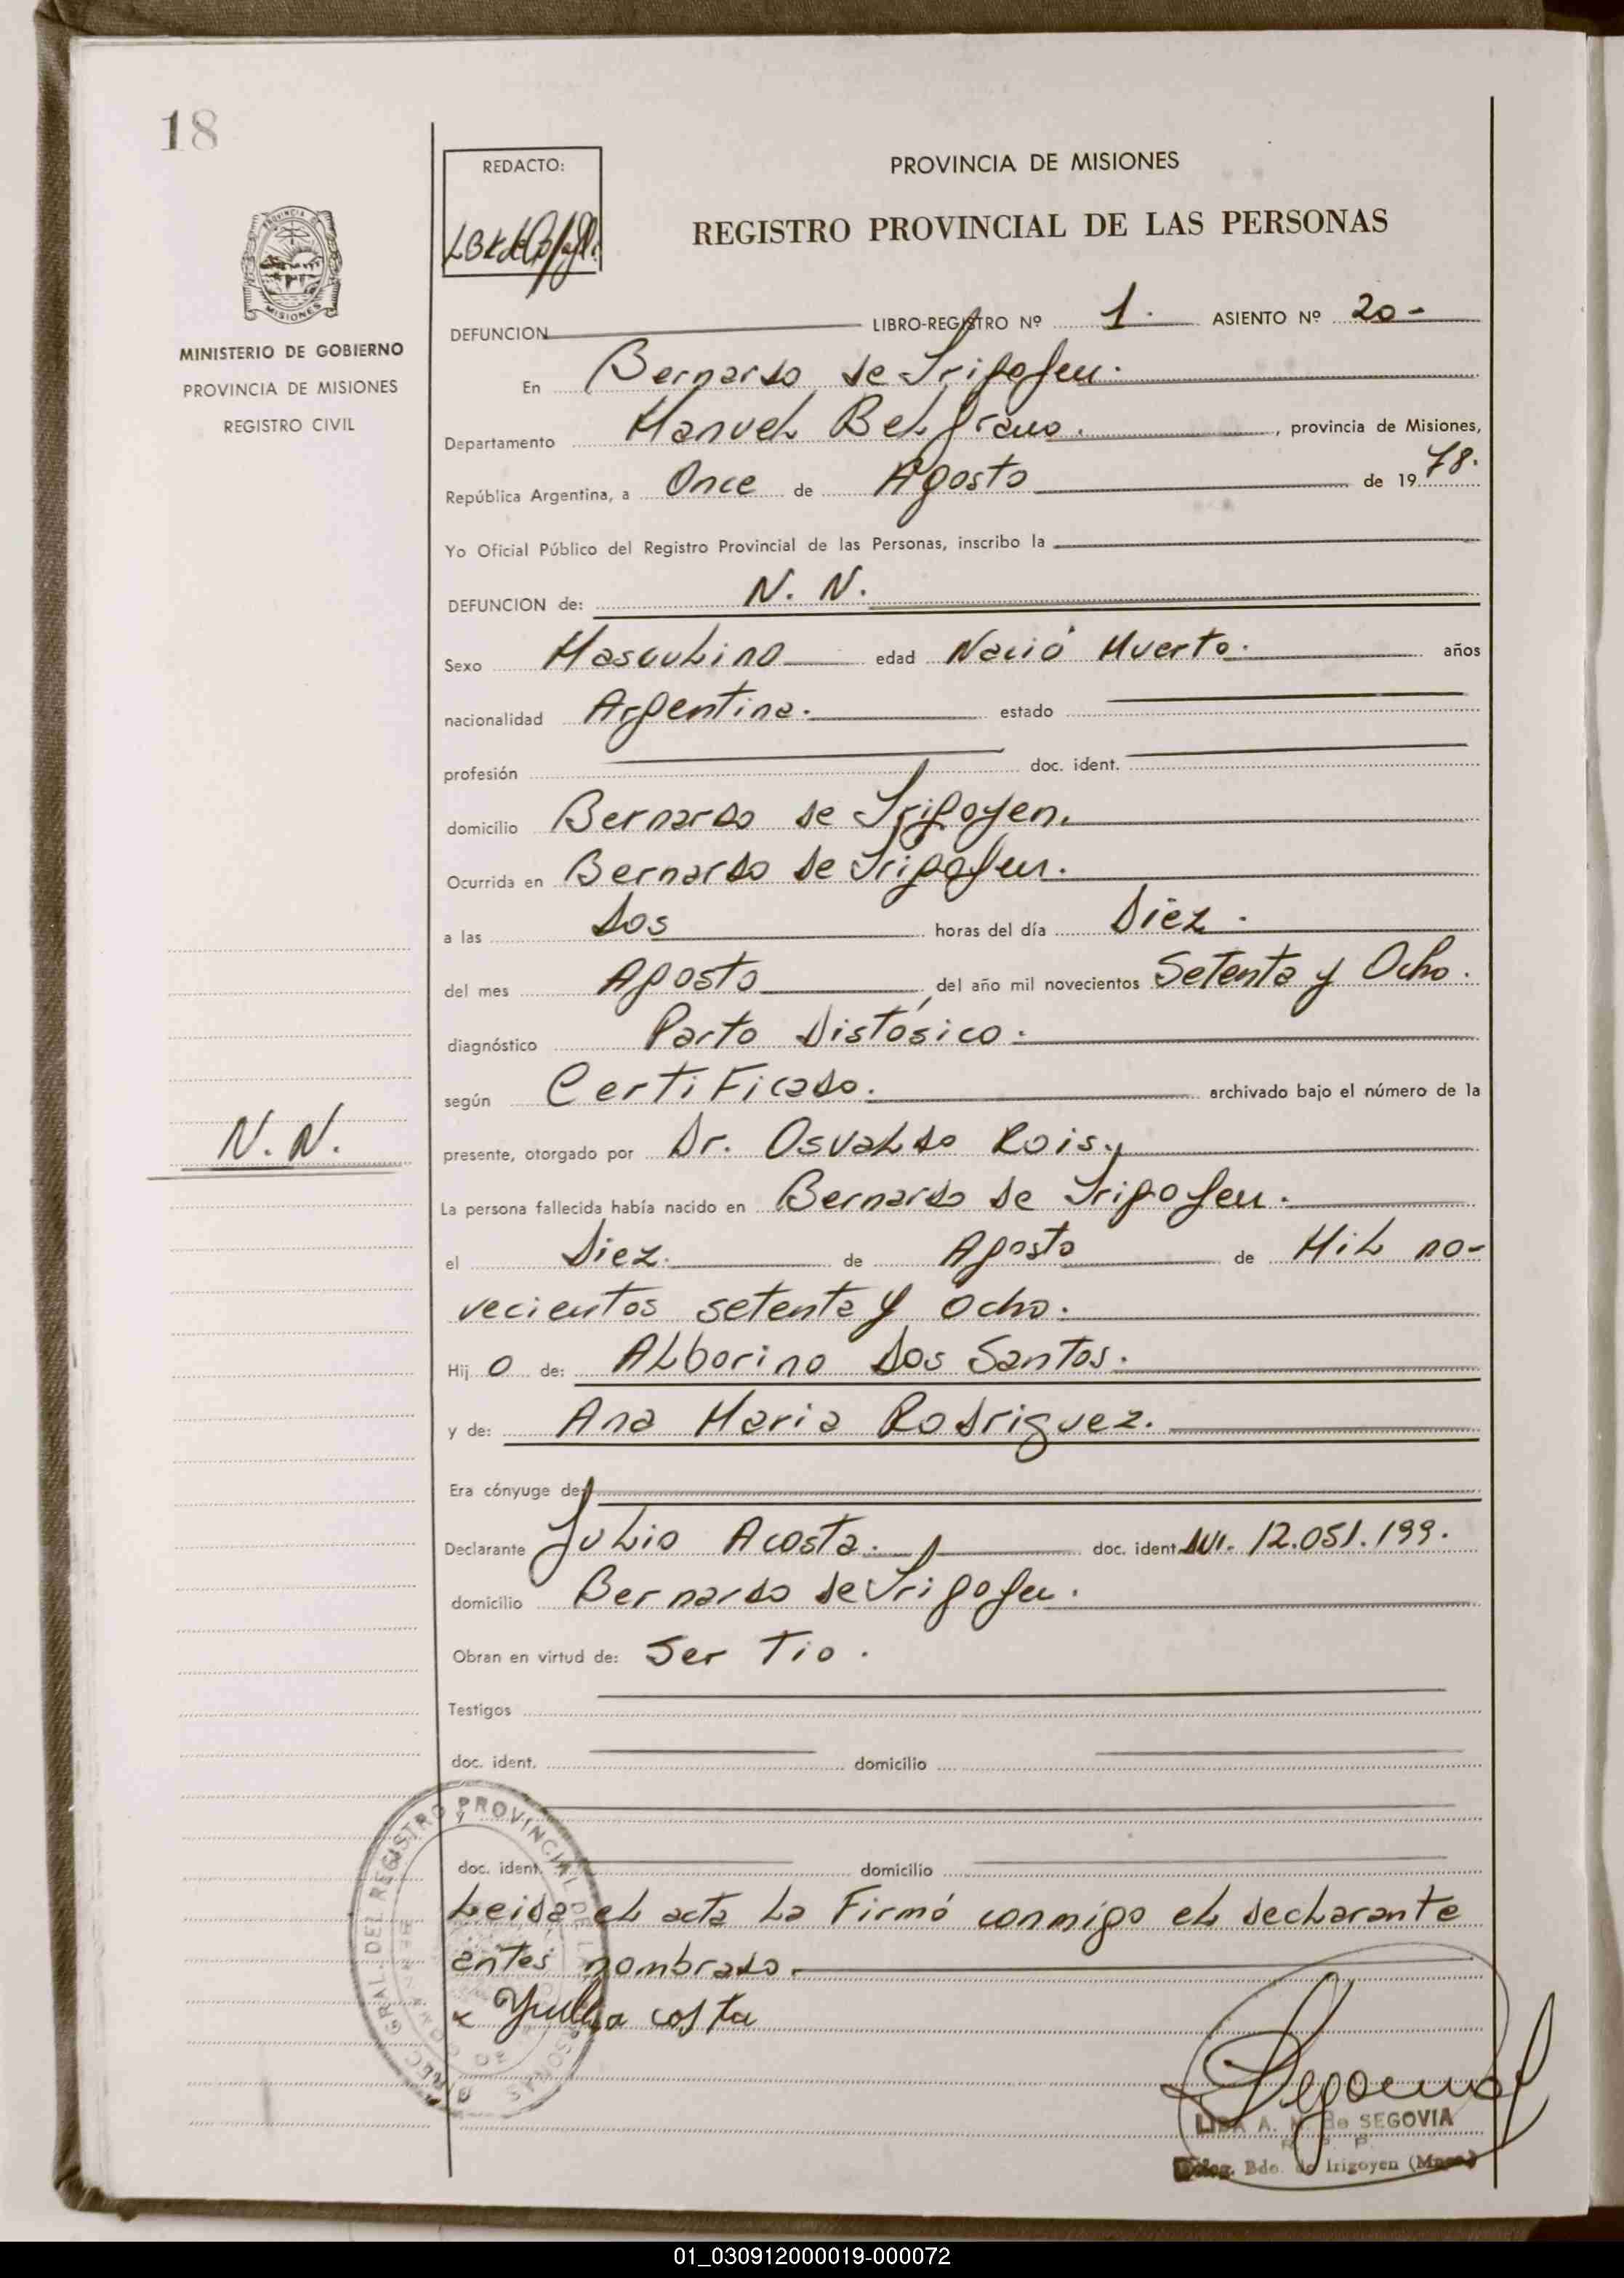 18
REDACTO:
PROVINCIA DE MISIONES
REGISTRO PROVINCIAL DE LAS PERSONAS
PROVINCIA DE
MISIONES
MINISTERIO DE GOBIERNO
PROVINCIA DE MISIONES
REGISTRO CIVIL
DEFUNCION LIBRO-REGISTRO Nº 1. ASIENTO Nº 20-
En Bernardo de Irigoyen.
Departamento Manuel Belgrano. , provincia de Misiones,
República Argentina, a Once de Agosto de 1978.
Yo Oficial Público del Registro Provincial de las Personas, inscribo la
DEFUNCION de: N. N.
Sexo Masculino edad Nació Muerto. años
nacionalidad Argentina. estado
profesión doc. ident.
domicilio Bernardo de Irigoyen.
Ocurrida en Bernardo de Irigoyen.
a las Dos horas del día Diez.
del mes Agosto del año mil novecientos Setenta y Ocho.
diagnóstico Parto Distósico.
según Certificado. archivado bajo el número de la
N. N.
presente, otorgado por Dr. Osvaldo Rois.
La persona fallecida había nacido en Bernardo de Irigoyen.
el Diez. de Agosto de Mil no-
vecientos setenta y ocho.
Hij o de: Alborino Dos Santos.
y de: Ana Maria Rodriguez.
Era cónyuge de:
Declarante Julio Acosta. doc. ident. DNI. 12.051.199.
domicilio Bernardo de Irigoyen.
Obran en virtud de: Ser Tio.
Testigos
doc. ident. domicilio
y
doc. ident. domicilio
Leida el acta la Firmó conmigo el declarante
antes nombrado.
x Yulioa costa
GRAL. DEL REGISTRO PROVINCIAL DE LAS PERSONAS
Segovia
A. SEGOVIA
R. P. P.
Deleg. Bdo. de Irigoyen (Mnes.)
01_030912000019-000072